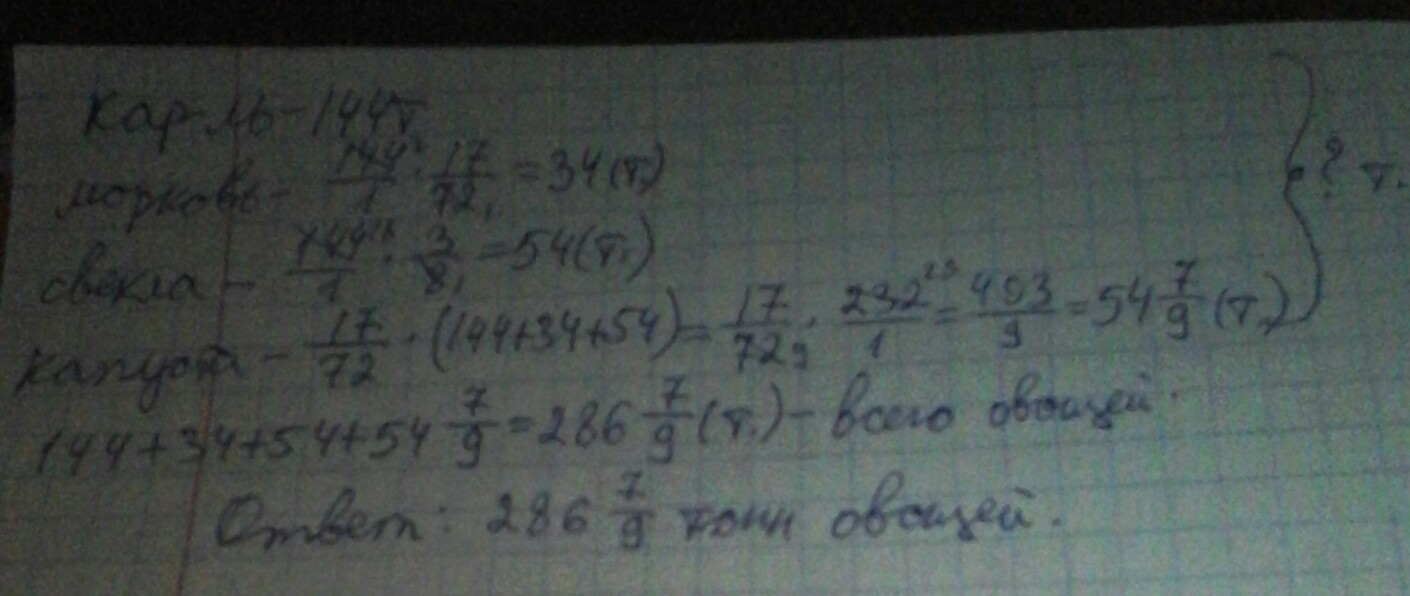 Кар-ль - 144т
морковь - 144²/1 · 17/72₁ = 34 (т.)
свекла - 144¹⁸/1 · 3/8₁ = 54 (т.)
капуста - 17/72 · (144+34+54) = 17/72₉ · 232²⁹/1 = 493/9 = 54 7/9 (т.) } ? т.
144+34+54+54 7/9 = 286 7/9 (т.) - всего овощей.
Ответ: 286 7/9 тонн овощей.